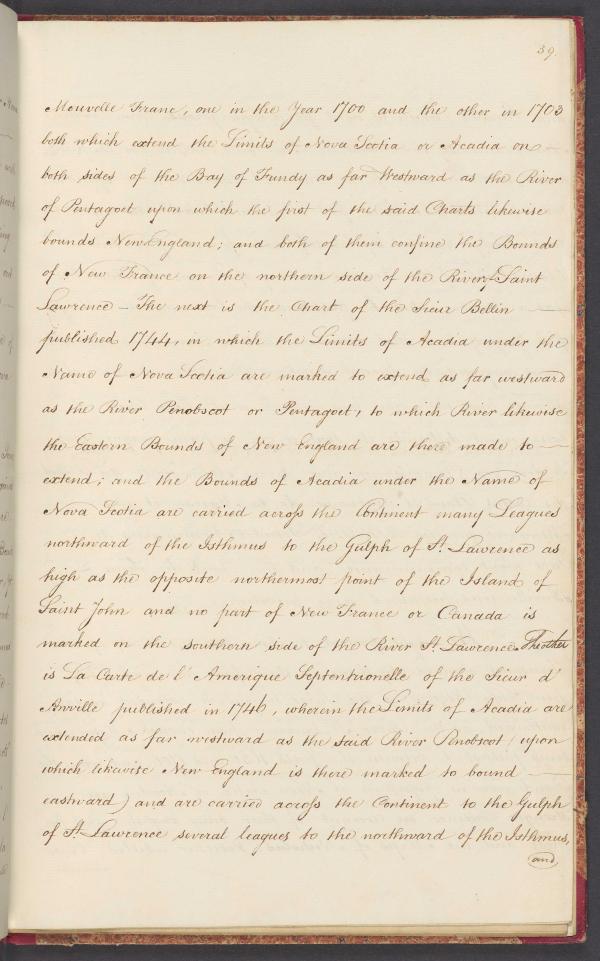 39.
Nouvelle Franc, one in the Year 1700 and the other in 1703
both which extend the Limits of Nova Scotia or Acadia on —
both sides of the Bay of Fundy as far Westward as the River
of Pentagoet upon which the first of the said Charts likewise
bounds New England; and both of them confine the Bounds
of New France on the northern side of the River of Saint
Lawrence – The next is the Chart of the Sieur Bellin —
published 1744, in which the Limits of Acadia under the
Name of Nova Scotia are marked to extend as far westward
as the River Penobscot or Pentagoet, to which River likewise
the Eastern Bounds of New England are there made to —
extend; and the Bounds of Acadia under the Name of
Nova Scotia are carried across the Continent many Leagues
northward of the Isthmus to the Gulph of St. Lawrence as
high as the opposite northermost point of the Island of
Saint John and no part of New France or Canada is
marked on the southern side of the River St. Lawrence. The other
is La Carte de l' Amerique Septentrionelle of the Sieur d'
Anville published in 1746, wherein the Limits of Acadia are
extended as far westward as the said River Penobscot (upon
which likewise New England is there marked to bound —
eastward) and are carried across the Continent to the Gulph
of St. Lawrence several leagues to the northward of the Isthmus,
and